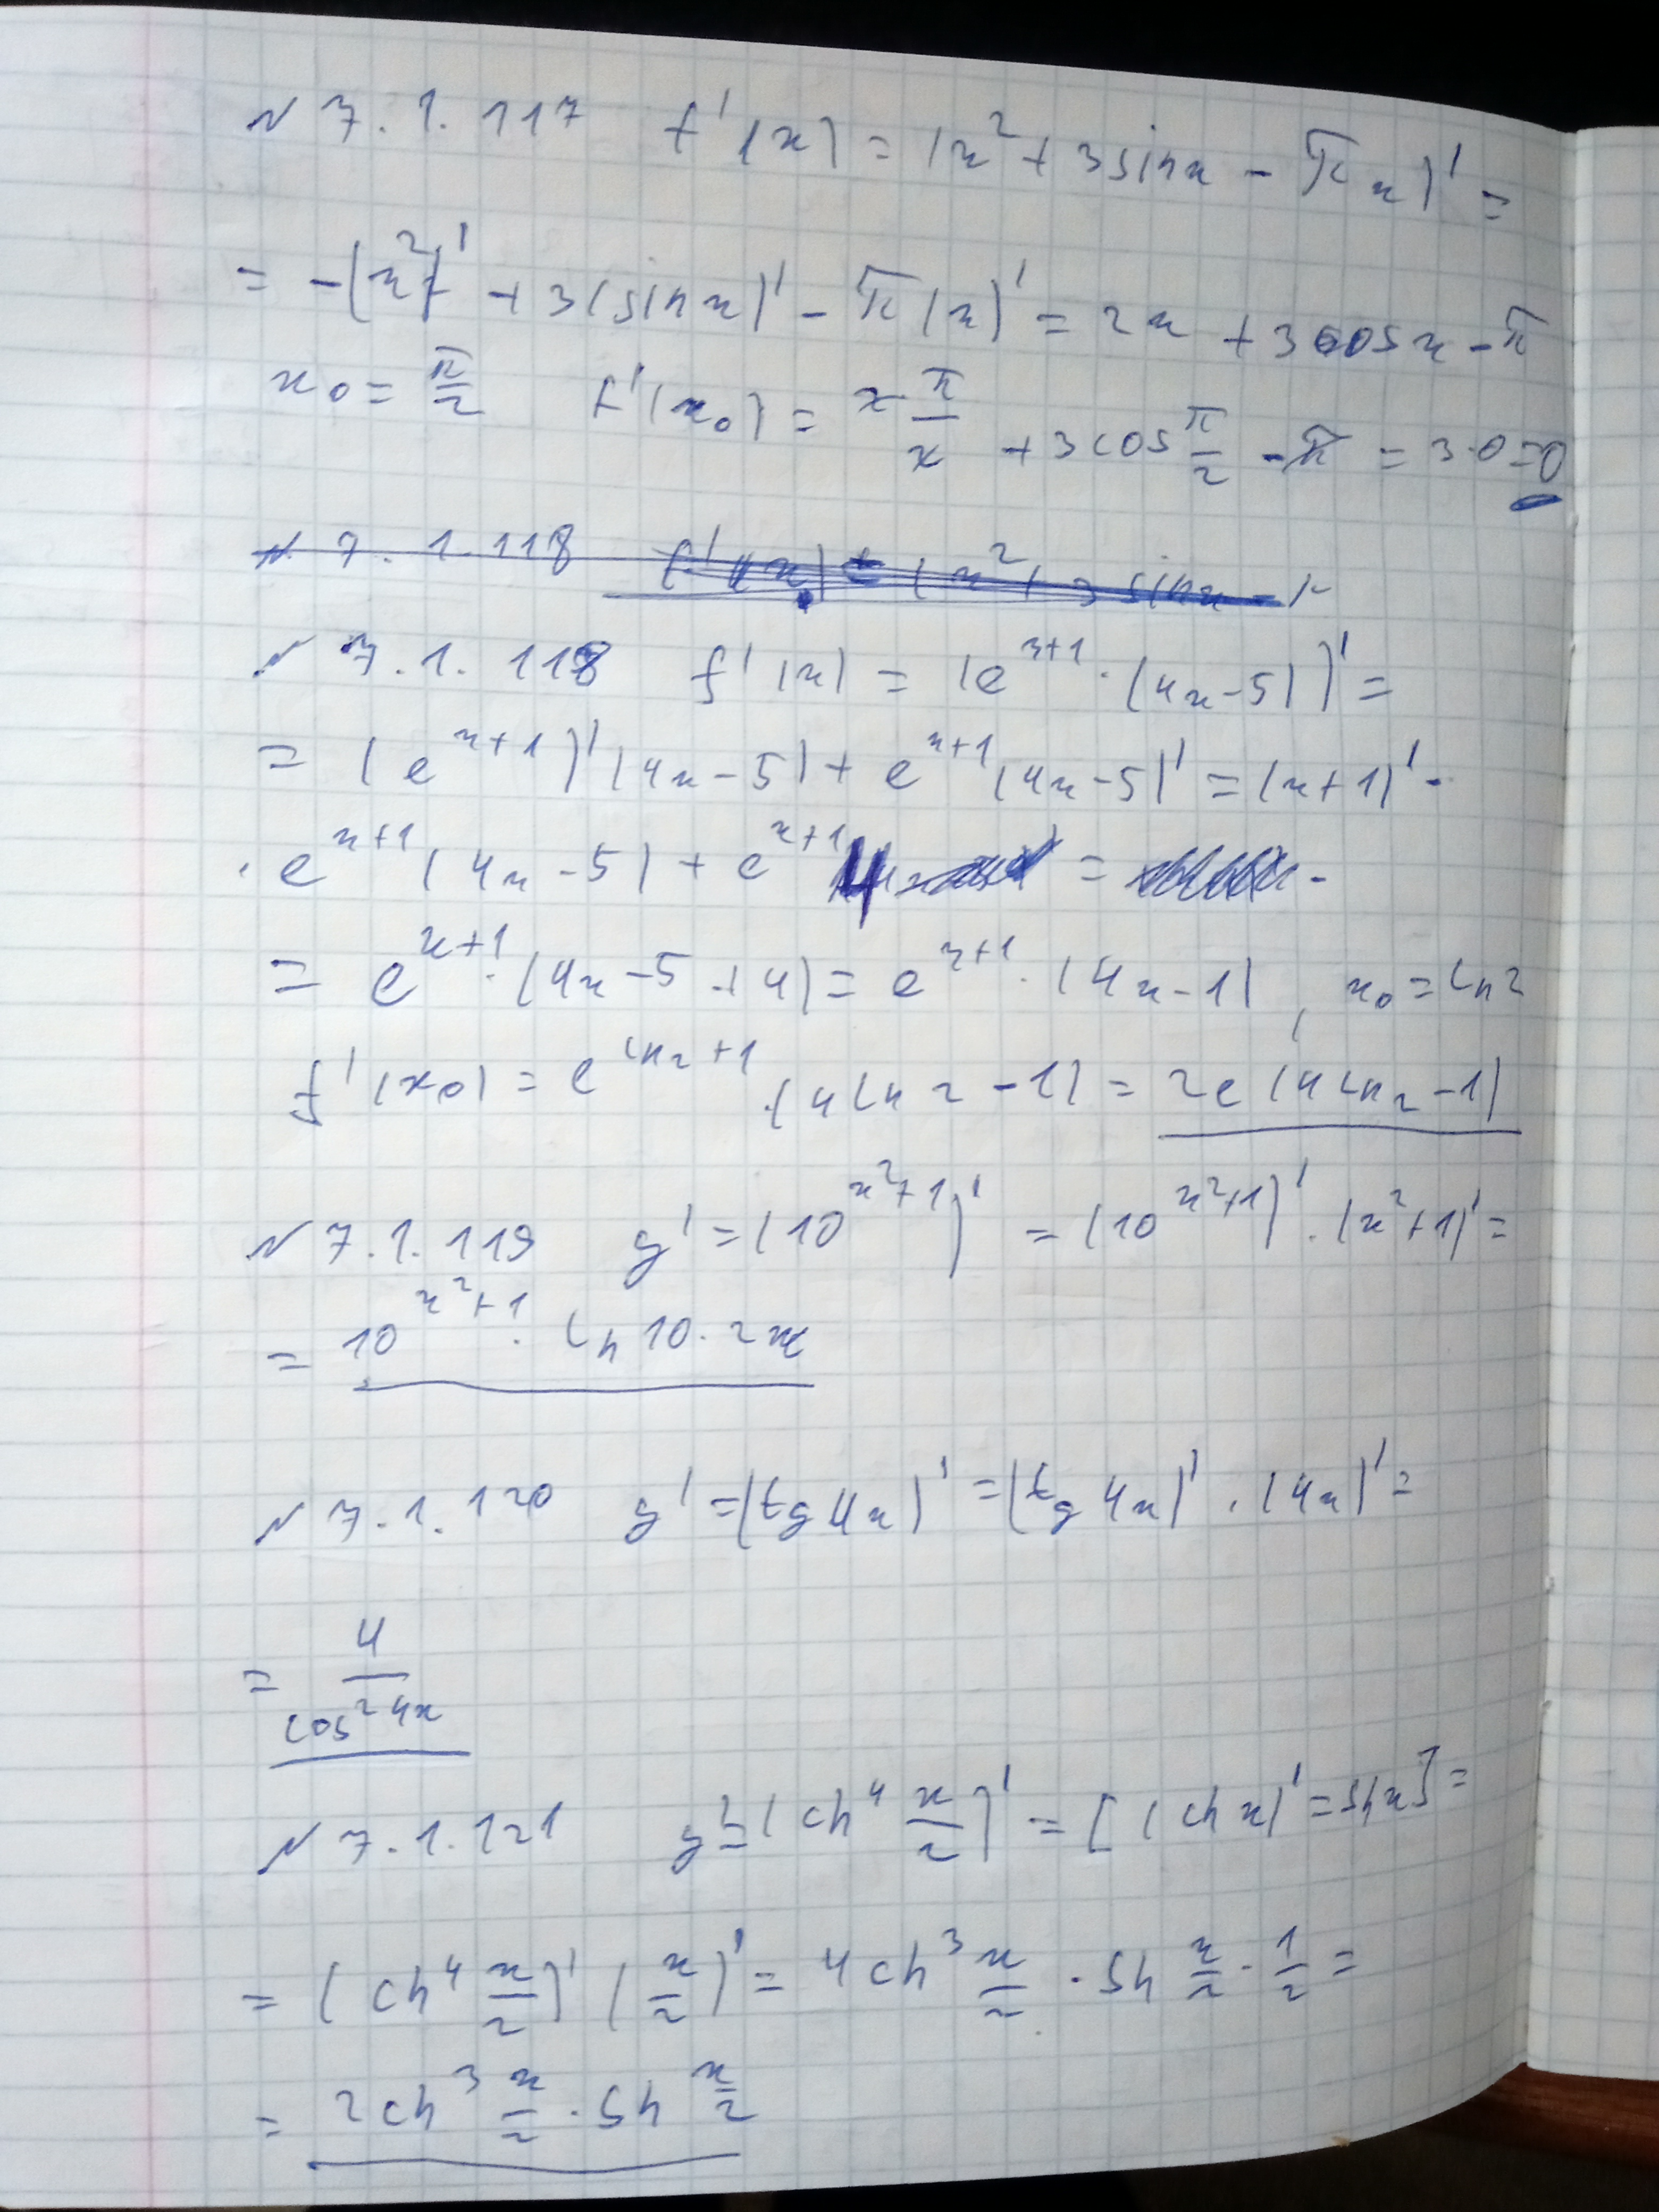 N 7.1.117 f'(x) = (x² + 3sinx - πx)' =
= -(x²)' + 3(sinx)' - π(x)' = 2x + 3cosx - π
x₀ = π/2 f'(x₀) = 2·π/2 + 3cos π/2 - π = 3·0 = 0
N 7.1.118 f'(x) = (x² + 3sinx -
N 7.1.118 f'(x) = (e^(x+1) · (4x-5))' =
= (e^(x+1))'(4x-5) + e^(x+1)(4x-5)' = (x+1)' ·
· e^(x+1) (4x-5) + e^(x+1) 4 =
= e^(x+1) · (4x-5+4) = e^(x+1) · (4x-1), x₀ = ln2
f'(x₀) = e^(ln2+1) · (4ln2-1) = 2e(4ln2-1)
N 7.1.119 y' = (10^(x²+1))' = (10^(x²+1))' · (x²+1)' =
= 10^(x²+1) · ln10 · 2x
N 7.1.120 y' = (tg4x)' = (tg4x)' · (4x)' =
= 4/cos²4x
N 7.1.121 y' = (ch⁴ x/2)' = [(chx)' = shx] =
= (ch⁴ x/2)' (x/2)' = 4ch³ x/2 · sh x/2 · 1/2 =
= 2ch³ x/2 · sh x/2